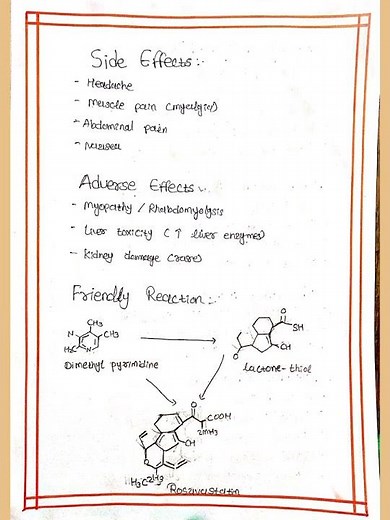 Side Effects :-
- Headache
- Muscle pain (myalgia)
- Abdominal pain
- Nausea
Adverse Effects :-
- Myopathy / Rhabdomyolysis
- Liver toxicity (↑ liver enzymes)
- Kidney damage (rare)
Friendly Reaction :-
CH3
N
CH3
H3C
N
O
SH
OH
Dimethyl pyrimidine
lactone-thiol
O
COOH
OH
O
H3C
Rosuvastatin